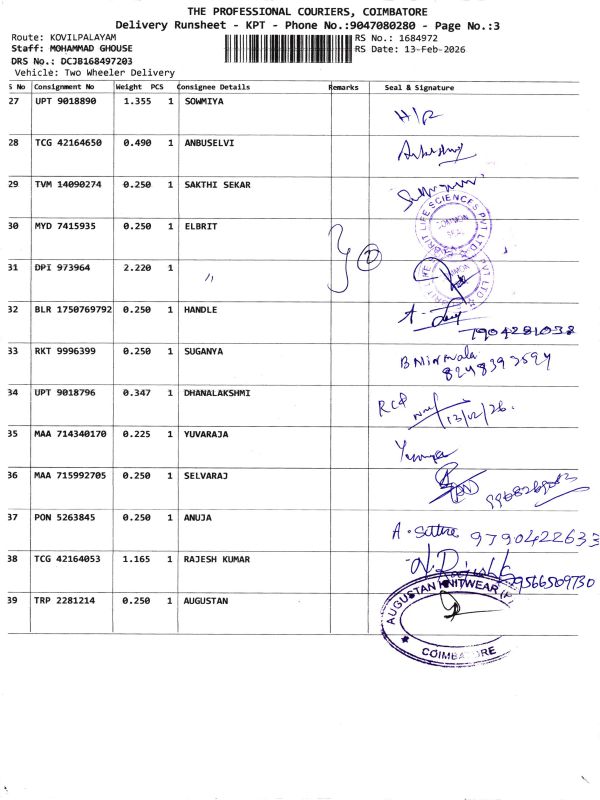 THE PROFESSIONAL COURIERS, COIMBATORE
Delivery Runsheet - KPT - Phone No.:9047080280 - Page No.:3
Route: KOVILPALAYAM RS No.: 1684972
Staff: MOHAMMAD GHOUSE RS Date: 13-Feb-2026
DRS No.: DCJB168497203
Vehicle: Two Wheeler Delivery
S No Consignment No Weight PCS Consignee Details Remarks Seal & Signature
27 UPT 9018890 1.355 1 SOWMIYA
28 TCG 42164650 0.490 1 ANBUSELVI
29 TVM 14090274 0.250 1 SAKTHI SEKAR
30 MYD 7415935 0.250 1 ELBRIT BRIT LIFE SCIENCES PVT LTD COMMON SEAL
31 DPI 973964 2.220 1 〃 2
32 BLR 1750769792 0.250 1 HANDLE
7904281038
33 RKT 9996399 0.250 1 SUGANYA B Nirmala
8248393594
34 UPT 9018796 0.347 1 DHANALAKSHMI 13/02/26.
35 MAA 714340170 0.225 1 YUVARAJA
36 MAA 715992705 0.250 1 SELVARAJ
37 PON 5263845 0.250 1 ANUJA 9790422633
38 TCG 42164053 1.165 1 RAJESH KUMAR 9566509730
39 TRP 2281214 0.250 1 AUGUSTAN AUGUSTAN KNITWEAR